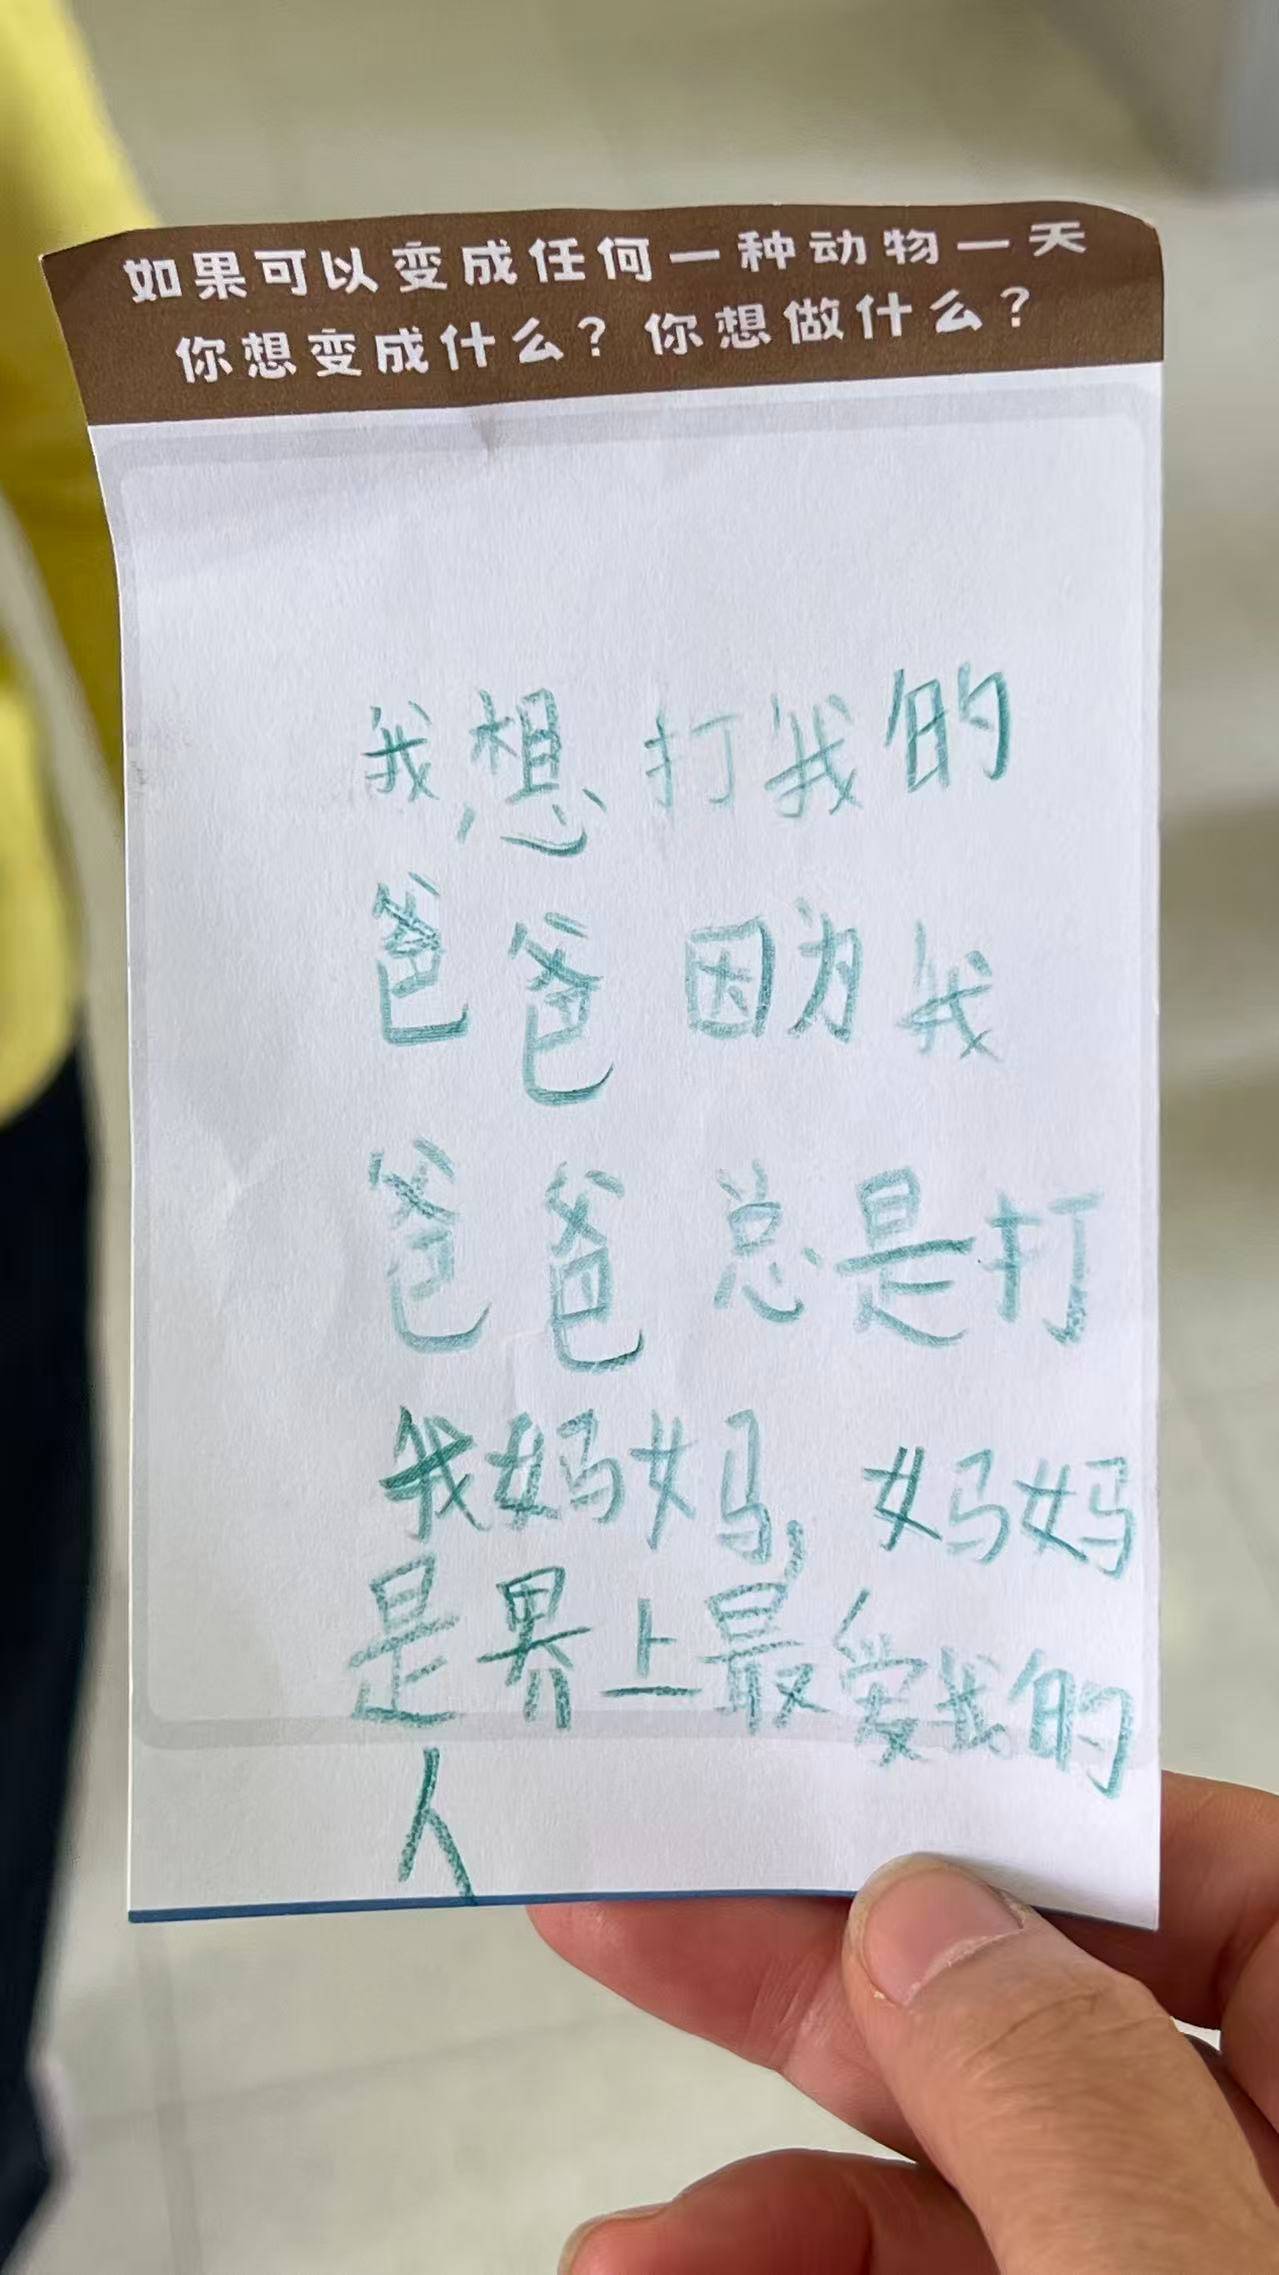 如果可以变成任何一种动物一天
你想变成什么？你想做什么？
我想打我的
爸爸因为我
爸爸总是打
我妈妈，妈妈
是界上最爱我的
人